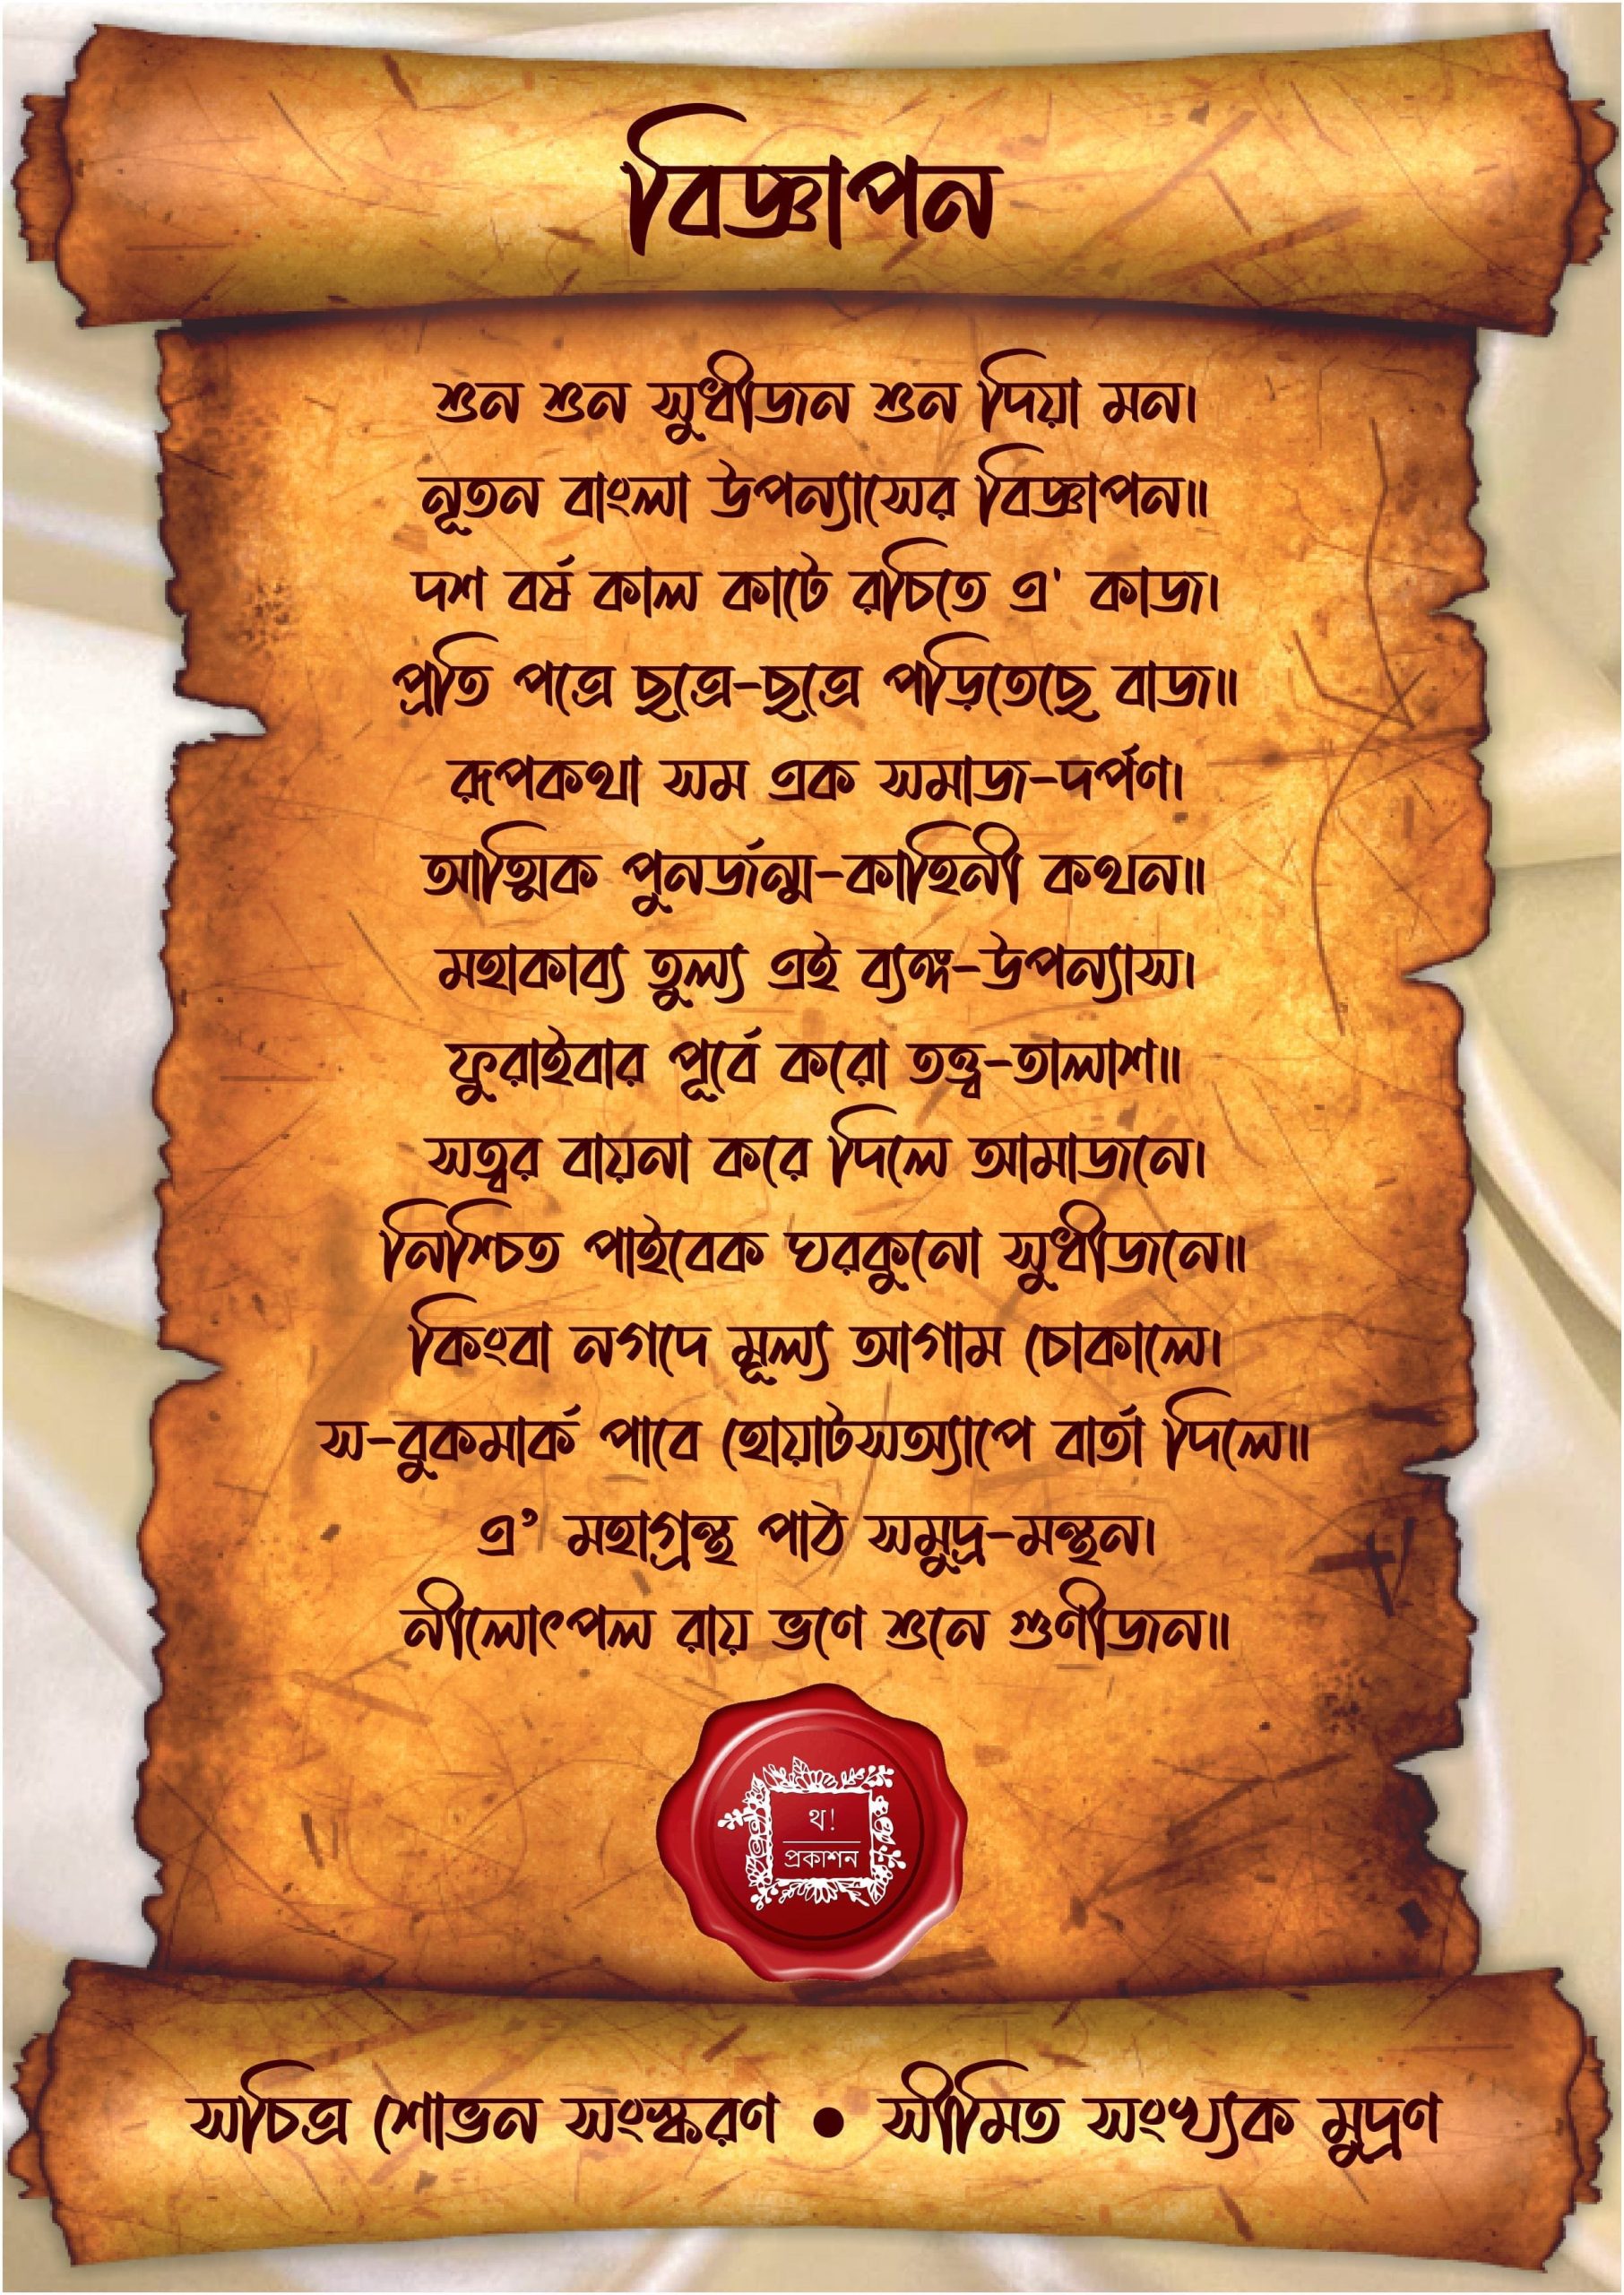 বিজ্ঞাপন
শুন শুন সুধীজন শুন দিয়া মন।
নূতন বাংলা উপন্যাসের বিজ্ঞাপন॥
দশ বর্ষ কাল কাটে রচিতে এ' কাজ।
প্রতি পত্রে ছত্রে-ছত্রে পড়িতেছে বাজ॥
রূপকথা সম এক সমাজ-দর্পণ।
আত্মিক পুনর্জন্ম-কাহিনী কথন॥
মহাকাব্য তুল্য এই ব্যঙ্গ-উপন্যাস।
ফুরাইবার পূর্বে করো তত্ত্ব-তালাশ॥
সত্বর বায়না করে দিলে আমাজনে।
নিশ্চিত পাইবেক ঘরকুনো সুধীজনে॥
কিংবা নগদে মূল্য আগাম চোকালে।
স-বুকমার্ক পাবে হোয়াটসঅ্যাপে বার্তা দিলে॥
এ’ মহাগ্রন্থ পাঠ সমুদ্র-মন্থন।
নীলোৎপল রায় ভণে শুনে গুণীজন॥
থ!
প্রকাশন
সচিত্র শোভন সংস্করণ • সীমিত সংখ্যক মুদ্রণ